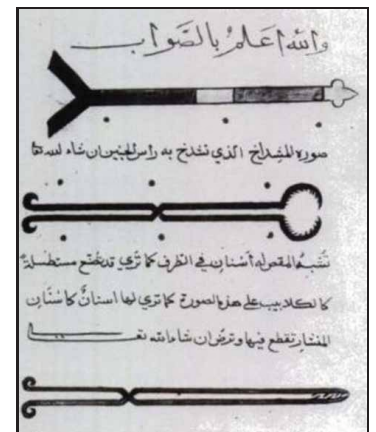 والله اعلم بالصواب
صورة المشداخ الذي نشدخ به راس الجنين ان شاء الله تعا
تشبه المقص له أسنان في الطرف كما تري قد تصنع مستطيلة
كالكلاليب على هذه الصورة كما تري لها اسنان كاسنان
المنشار تقطع فيها وترض ان شاء الله تعا